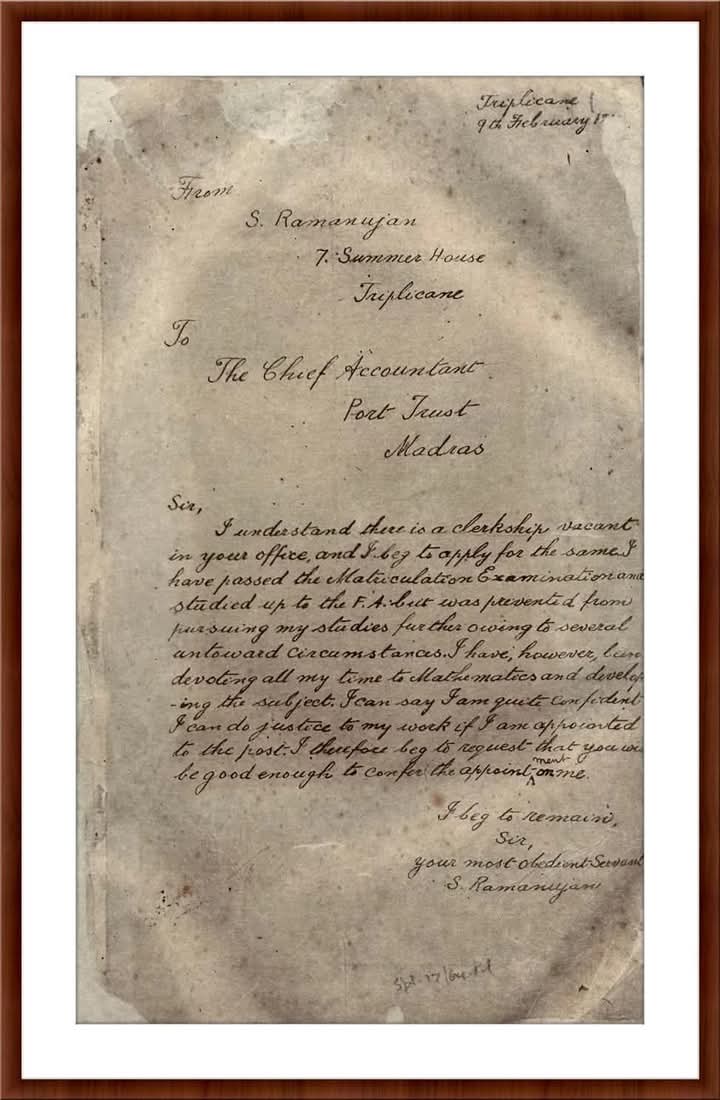 Triplicane
9th February
From
S. Ramanujan
7. Summer House
Triplicane
To
The Chief Accountant
Port Trust
Madras
Sir,
I understand there is a clerkship vacant
in your office, and I beg to apply for the same. I
have passed the Matriculation Examination and
studied up to the F.A. but was prevented from
pursuing my studies further owing to several
untoward circumstances. I have, however, been
devoting all my time to Mathematics and develop
-ing the subject. I can say I am quite confident
I can do justice to my work if I am appointed
to the post. I therefore beg to request that you
be good enough to confer the appointment on me.
I beg to remain,
Sir,
your most obedient Servant
S. Ramanujan